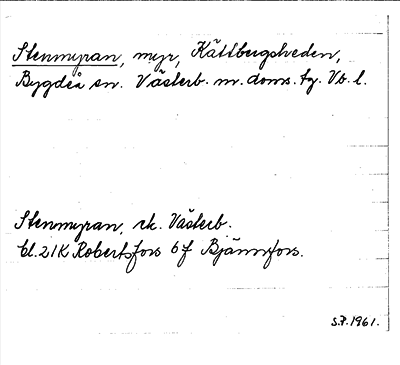 Stenmyran, myr, Kättbergsheden,
Bygdeå sn. Västerb. m. doms. tg. Vb. l.
Stenmyran, rk. Västerb.
bl. 21K Robertsfors 6 f Bjännfors.
S.F. 1961.